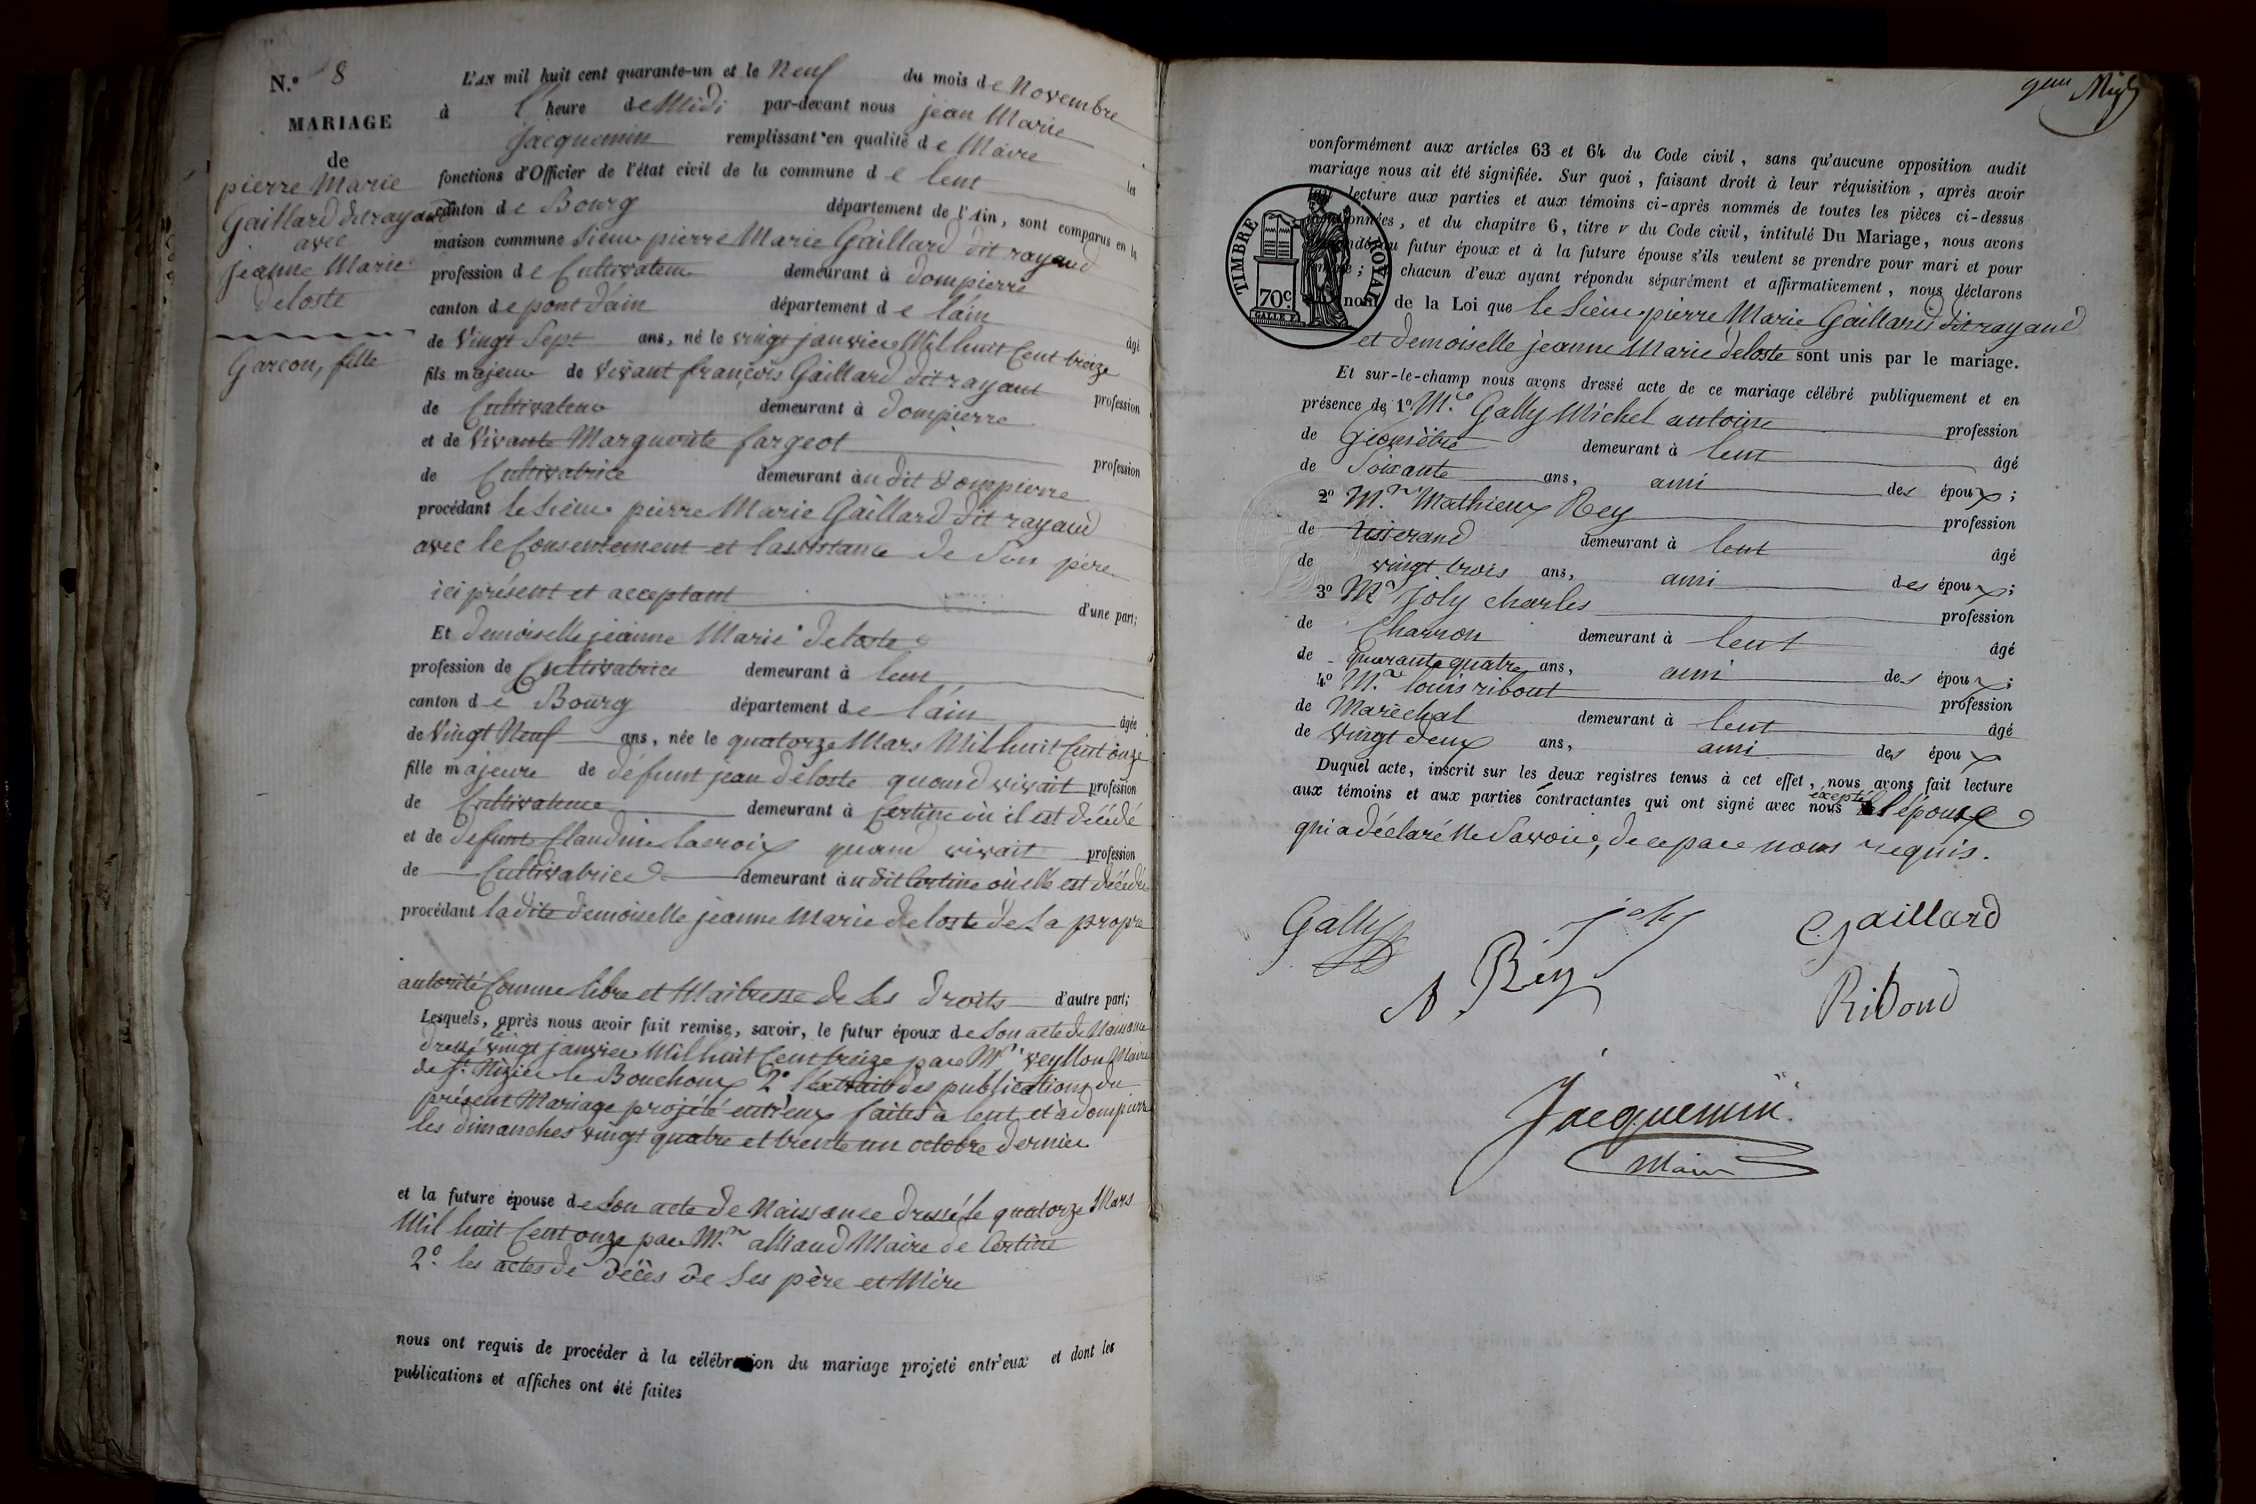 N.o 8
MARIAGE
de
pierre Marie
Gaillard dit rayaud
avec
jeanne Marie
deloste
Garçon, fille
L'AN mil huit cent quarante-un et le Neuf du mois de Novembre
à l'heure de Midi par-devant nous jean Marie
Jacquemin remplissant en qualité de Maire les
fonctions d'Officier de l'état civil de la commune de lent
canton de Bourg département de l'Ain, sont comparus en la
maison commune Sieur pierre Marie Gaillard dit rayaud
profession de Cultivateur demeurant à dompierre
canton de pont d'ain département de l'áin
âgé
de Vingt Sept ans, né le vingt janvier Mil huit Cent treize
fils majeur de Vivant françois Gaillard dit rayaud profession
de Cultivateur demeurant à dompierre
et de Vivante Marguerite fargeot profession
de Cultivatrice demeurant àudit dompierre
procédant le Sieur pierre Marie Gaillard dit rayaud
avec le Consentement et lassistance de Son père
ici présent et acceptant d'une part;
Et demoiselle jeanne Marie deloste
profession de Cultivatrice demeurant à lent
canton de Bourg département de l'áin âgée
de Vingt Neuf ans, née le quatorze Mars Mil huit Cent onze
fille majeure de défunt jean deloste quand vivait profession
de Cultivateur demeurant à Certine où il est décédé
et de défunte Claudine lacroix quand vivait profession
de Cultivatrice demeurant àudit Certine où elle est décédée
procédant ladite demoiselle jeanne Marie deloste de Sa propre
autorité Comme libre et Maitresse de Ses droits d'autre part;
Lesquels, après nous avoir fait remise, savoir, le futur époux de Son acte de Naissance
dressé le vingt janvier Mil huit Cent treize par Mr. veyllon Maire
de St. Nizier le Bouchoux 2o l'extrait des publications du
présent Mariage projété entr'eux faites à lent et à dompierre
les dimanches vingt quatre et trente un octobre dernier
et la future épouse de Son acte de Naissance dressé le quatorze Mars
Mil huit Cent onze par Mr. alliaud Maire de Certine
2o. les actes de décès de Ses père et Mère
nous ont requis de procéder à la célébration du mariage projeté entr'eux et dont les
publications et affiches ont été faites
vonformément aux articles 63 et 64 du Code civil, sans qu'aucune opposition audit
mariage nous ait été signifiée. Sur quoi, faisant droit à leur réquisition, après avoir
lecture aux parties et aux témoins ci-après nommés de toutes les pièces ci-dessus
onnées, et du chapitre 6, titre v du Code civil, intitulé Du Mariage, nous avons
futur époux et à la future épouse s'ils veulent se prendre pour mari et pour
; chacun d'eux ayant répondu séparément et affirmativement, nous déclarons
nom de la Loi que le Sieur pierre Marie Gaillard dit rayaud
et demoiselle jeanne Marie deloste sont unis par le mariage.
TIMBRE ROYAL
70c
Et sur-le-champ nous avons dressé acte de ce mariage célébré publiquement et en
présence de 1o. M. Gally Michel antoine profession
de Géomètre demeurant à lent âgé
de Soixante ans, ami des époux;
2o Mr. Mathieux Rey profession
de tisserand demeurant à lent âgé
de vingt trois ans, ami des époux;
3o Mr joly charles profession
de Charron demeurant à lent âgé
de quarante quatre ans, ami des époux;
4o Mr. louis ribout profession
de Maréchal demeurant à lent âgé
de vingt deux ans, ami des époux
Duquel acte, inscrit sur les deux registres tenus à cet effet, nous avons fait lecture
aux témoins et aux parties contractantes qui ont signé avec nous excepté l'épouse
qui a déclaré Ne Savoir, de ce par nous requis.
Gally joly Gaillard
Rey Riboud
Jacquemin
Maire